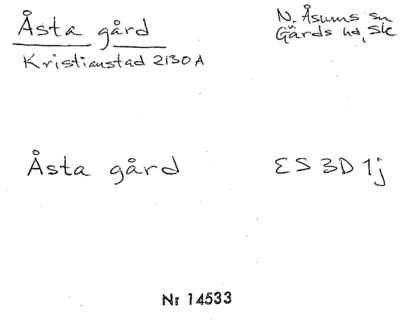 Åsta gård
N. Åsums sn
Gärds hd, Sk
Kristianstad 2130 A
Åsta gård
ES 3D 1j
Nr 14533